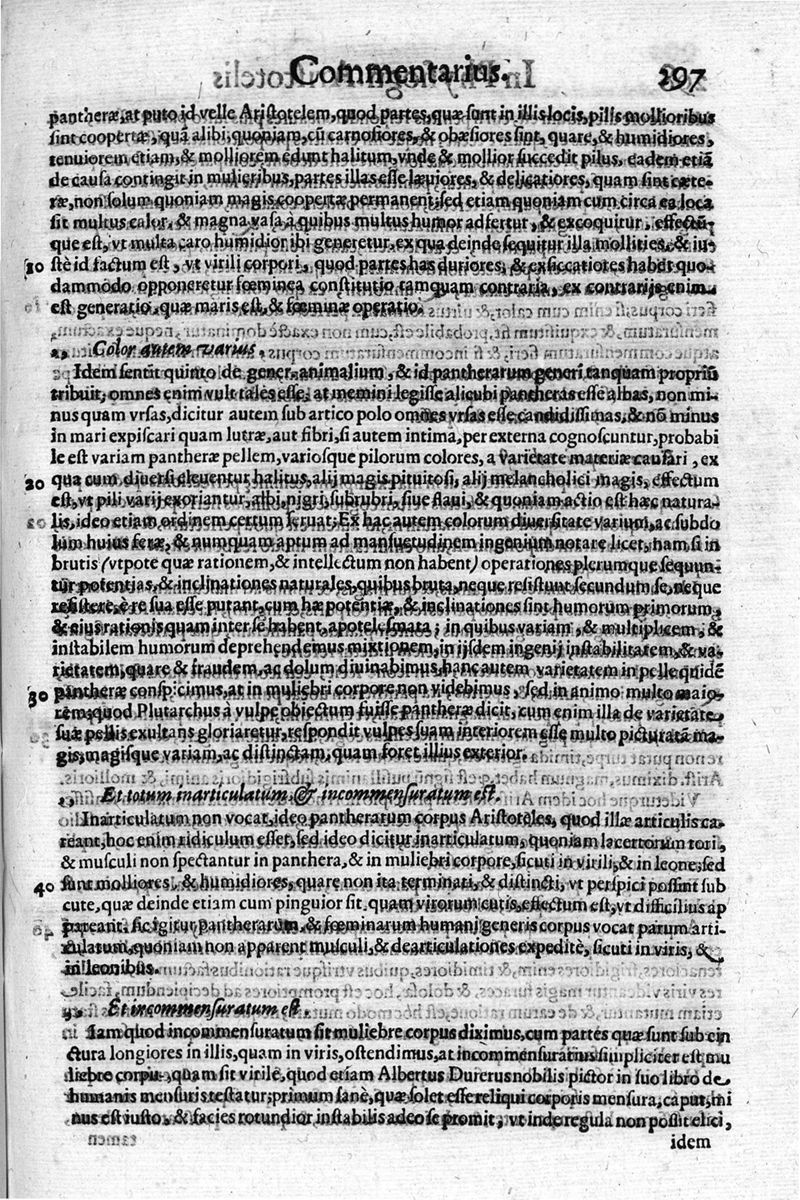 Commentarius. 297
pantheræ, at puto id velle Aristotelem, quod partes, quæ sunt in illis locis, pilis mollioribus
sint coopertæ, quã alibi, quoniam, cũ carnosiores, & obæsiores sint, quare, & humidiores,
tenuiorem etiam, & molliorem edunt halitum, vnde & mollior succedit pilus, eadem etiã
de causa contingit in mulieribus, partes illas esse læuiores, & delicatiores, quam sint cæte-
ræ, non solum quoniam magis coopertæ permanent, sed etiam quoniam cum circa ea loca
sit multus calor, & magna vasa à quibus multus humor adfertur, & excoquitur, effectũ-
que est, vt multa caro humidior ibi generetur, ex qua deinde sequitur illa mollities, & iu-
10 stè id factum est, vt virili corpori, quod partes has duriores, & exsiccatiores habet quo-
dammodo opponeretur fœminea constitutio tamquam contraria, ex contrarijs enim
est generatio, quæ maris est, & fœminæ operatio.
Color autem varius.
Idem sentit quinto de gener. animalium, & id pantherarum generi tanquam propriũ
tribuit, omnes enim vult tales esse, at memini legisse alicubi pantheras esse albas, non mi-
nus quam vrsas, dicitur autem sub artico polo omnes vrsas esse candidissimas, & nõ minus
in mari expiscari quam lutræ, aut fibri, si autem intima, per externa cognoscuntur, probabi
le est variam pantheræ pellem, variosque pilorum colores, a varietate materiæ causari, ex
20 qua cum diuersi eleuentur halitus, alij magis pituitosi, alij melancholici magis, effectum
est, vt pili varij exoriantur, albi, nigri, subrubri, siue flaui, & quoniam actio est hæc natura-
lis, ideo etiam ordinem certum seruat; Ex hac autem colorum diuersitate varium, ac subdo
lum huius feræ, & numquam aptum ad mansuetudinem ingenium notare licet, nam si in
brutis (vtpote quæ rationem, & intellectum non habent) operationes plerumque sequun-
tur potentias, & inclinationes naturales, quibus bruta, neque resistunt secundum se, neque
resistere, è re sua esse putant, cum hæ potentiæ, & inclinationes sint humorum primorum,
& eius rationis quam inter se habent, apotelesmata; in quibus variam, & multiplicem, &
instabilem humorum deprehendemus mixtionem, in ijsdem ingenij instabilitatem, & va-
rietatem, quare & fraudem, ac dolum diuinabimus, hanc autem varietatem in pelle quidẽ
30 pantheræ conspicimus, at in muliebri corpore non videbimus, sed in animo multo maio-
rem; quod Plutarchus à vulpe obiectum fuisse pantheræ dicit, cum enim illa de varietate
suæ pellis exultans gloriaretur, respondit vulpes suam interiorem esse multo picturatã ma-
gis, magisque variam, ac distinctam, quam foret illius exterior.
Et totum inarticulatum & incommensuratum est.
Inarticulatum non vocat, ideo pantherarum corpus Aristoteles, quod illæ articulis ca-
reant, hoc enim ridiculum esset, sed ideo dicitur inarticulatum, quoniam lacertorum tori,
& musculi non spectantur in panthera, & in muliebri corpore, sicuti in virili, & in leone; sed
40 sunt molliores, & humidiores, quare non ita terminati, & distincti, vt perspici possint sub
cute, quæ deinde etiam cum pinguior sit, quam virorum cutis, effectum est, vt difficilius ap
pareant. sic igitur pantherarum, & fœminarum humani generis corpus vocat parum arti-
culatum, quoniam non apparent musculi, & dearticulationes expeditè, sicuti in viris, &
in leonibus.
Et incommensuratum est.
Iam quod incommensuratum sit muliebre corpus diximus, cum partes quæ sunt sub cin
ctura longiores in illis, quam in viris, ostendimus, at incommensuratius simpliciter est mu
liebre corpus, quam sit virile, quod etiam Albertus Durerus nobilis pictor in suo libro de
humanis mensuris testatur; primum sanè, quæ solet esse reliqui corporis mensura, caput, mi
nus est iusto, & facies rotundior instabilis adeo se promit, vt inde regula non possit elici,
idem